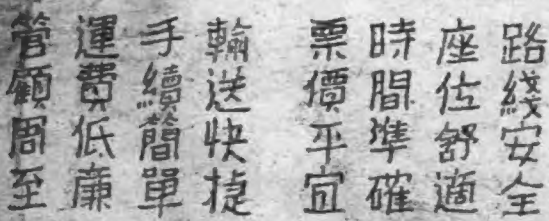 路綫安全
座位舒適
時間準確
票價平宜
輸送快捷
手續簡單
運費低廉
管顧周至